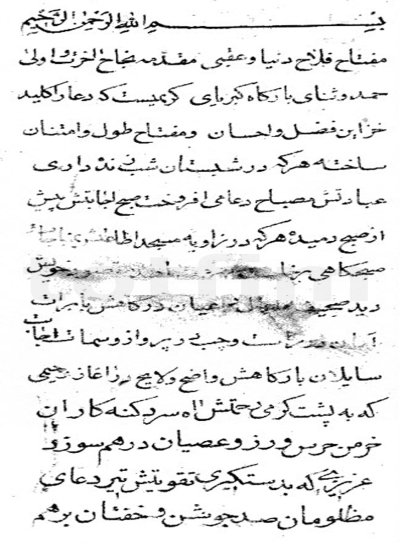 بسم الله الرحمن الرحیم
مفتاح فلاح دنیا و عقبی مقدمه نجاح اخری و اولی
حمد و ثنای بارکاه کبریای کریمیست که دعا را کلید
خزاین فضل و احسان ومفتاح طول و امتنان
ساخته هرکه در شبستان شب زنده داری
عبادتش مصباح دعا می افروخت صبح اجابتش پیش
از صبح دمیده هرکه در زاویه مسجد اطاعتش
صبحکاهی
دید صحیفه عصیان در کفش با برات
است و چپ دیر و از و سمات اجابت
سایلان بارکاهش واضح و لایح رحیمی
که به پشت کرمی رحمتش اه سرد کنه کاران
خرمن حرس ورزو عصیان درهم سوزد و
عزیزی که بدستکیری تقویتش تیر دعای
مظلومان صد جوشن و خفتان برهم